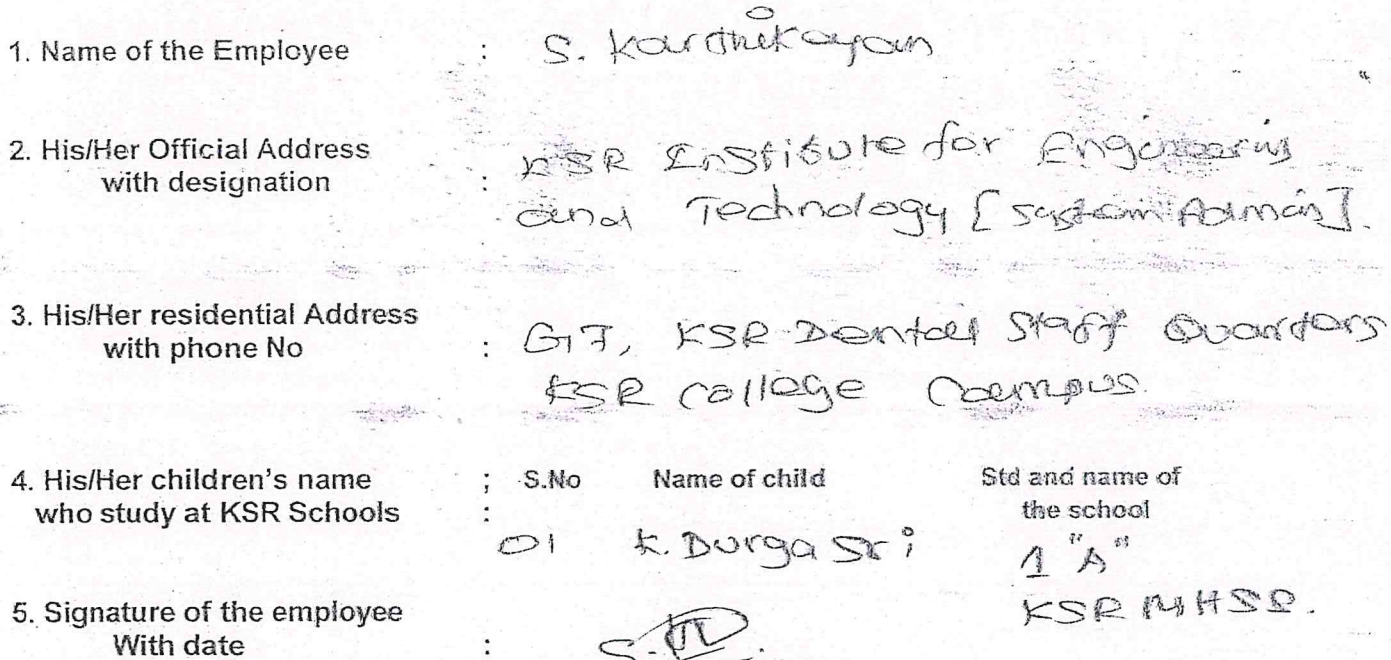 1. Name of the Employee : S. Karthikayan
2. His/Her Official Address
with designation : KSR Institute for Engineering
and Technology [System Admin].
3. His/Her residential Address
with phone No : G17, KSR Dental Staff Quarters
KSR College Campus.
4. His/Her children's name ; S.No Name of child Std and name of
who study at KSR Schools : the school
01 K. Durga Sri 1 "A"
KSR MHSS.
5. Signature of the employee
With date :